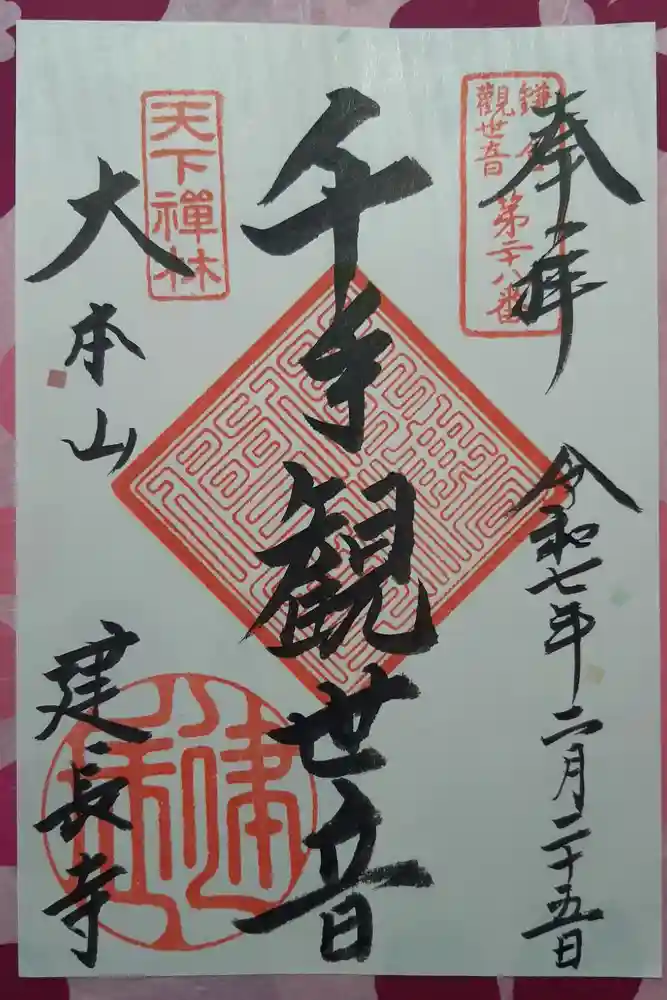 奉拝
令和七年二月二十五日
鎌倉
觀世音
第二十八番
千手観世音
天下禪林
大本山
建長寺